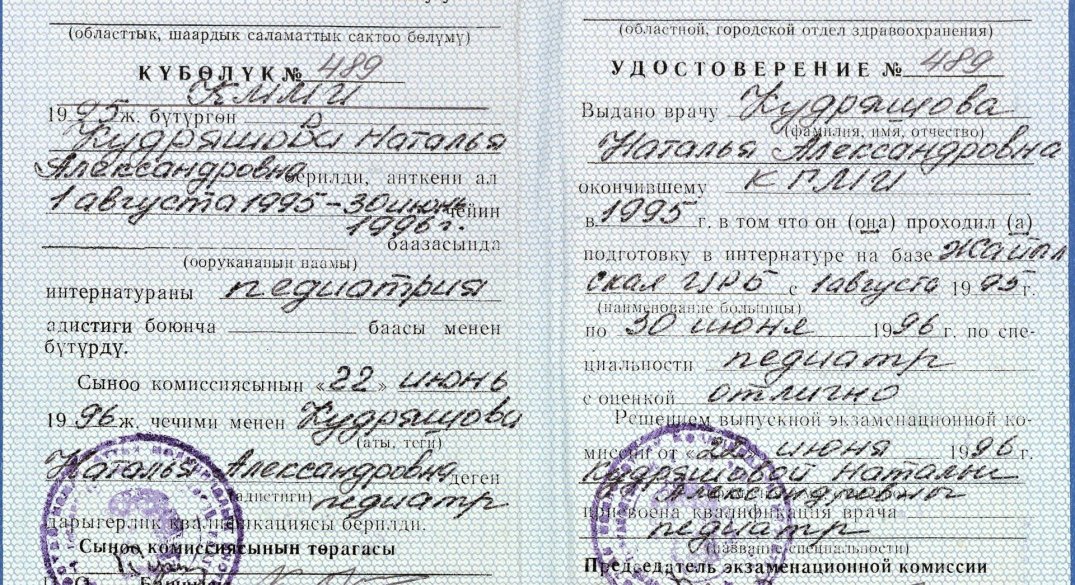 (областтык, шаардык саламаттык сактоо бөлүмү)
КҮБӨЛҮК № 489
КММИ
1995 ж. бүтүргөн
Кудряшова Наталья
Александровна берилди, анткени ал
1 августа 1995 - 30 июнь чейин
1996 г.
баазасында
(оорукананын наамы)
интернатураны педиатрия
адистиги боюнча баасы менен
бүтүрдү.
Сыноо комиссиясынын «22» июнь
1996 ж. чечими менен Кудряшова
(аты, теги)
Наталья Александровна деген
(адистиги) педиатр
дарыгерлик квалификациясы берилди.
Сыноо комиссиясынын төрагасы
(областной, городской отдел здравоохранения)
УДОСТОВЕРЕНИЕ № 489
Выдано врачу Кудряшова
(фамилия, имя, отчество)
Наталья Александровна
окончившему КГМИ
в 1995 г. в том что он (она) проходил (а)
подготовку в интернатуре на базе
ская ЦРБ с 1 августа 1995 г.
(наименование больницы)
по 30 июня 1996 г. по спе-
циальности педиатр
с оценкой отлично
Решением выпускной экзаменационной ко-
миссии от «22» июня 1996 г.
Кудряшовой Натальи
Александровны
присвоена квалификация врача
педиатр
(название специальности)
Председатель экзаменационной комиссии